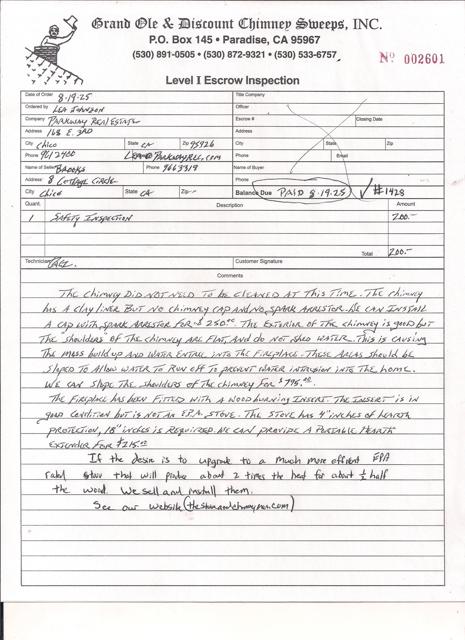 Grand Ole & Discount Chimney Sweeps, INC.
P.O. Box 145 • Paradise, CA 95967
(530) 891-0505 • (530) 872-9321 • (530) 533-6757
Nº 002601
Level I Escrow Inspection
Date of Order 8-19-25
Title Company
Ordered by LEA JOHNSON
Officer
Company PARKWAY REAL ESTATE
Escrow # Closing Date
Address 168 E. 3RD
Address
City CHICO State CA Zip 95926
City State Zip
Phone
Phone Email
Name of Seller BROOKS Phone 9663319
Name of Buyer
Address 8 COTTAGE CIRCLE
Phone
City CHICO State CA Zip
Balance Due PAID 8-19-25 √ #1428
Quant. Description Amount
1 SAFETY INSPECTION 200.-
Total 200.-
Technician Customer Signature
Comments
THE CHIMNEY DID NOT NEED TO BE CLEANED AT THIS TIME. THE CHIMNEY
HAS A CLAY LINER BUT NO CHIMNEY CAP AND NO SPARK ARRESTOR. WE CAN INSTALL
A CAP WITH SPARK ARRESTOR FOR $ 250.00 THE EXTERIOR OF THE CHIMNEY IS GOOD BUT
THE SHOULDERS OF THE CHIMNEY ARE FLAT, AND DO NOT SHED WATER. THIS IS CAUSING
THE MOSS BUILD UP AND WATER ENTRY INTO THE FIREPLACE. THESE AREAS SHOULD BE
SLOPED TO ALLOW WATER TO RUN OFF TO PREVENT WATER INTRUSION INTO THE HOME.
WE CAN SLOPE THE SHOULDERS OF THE CHIMNEY FOR $795.00.
THE FIREPLACE HAS BEEN FITTED WITH A WOOD BURNING INSERT. THE INSERT IS IN
GOOD CONDITION BUT IS NOT AN E.P.A. STOVE. THE STOVE HAS 4" INCHES OF HEARTH
PROTECTION, 18" INCHES IS REQUIRED. WE CAN PROVIDE A PORTABLE HEARTH
EXTENDER FOR $215.00
If the desire is to upgrade to a much more efficient EPA
rated stove that will produce about 2 times the heat for about ½ half
the wood. We sell and install them.
See our website (thestoveandchimneyman.com)